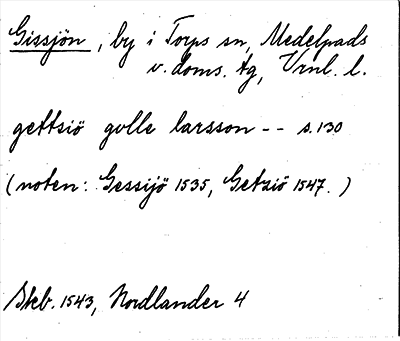 Gissjön, by i Torps sn, Medelpads
v. doms. tg, Vrnl. l.
gettsiö golle larsson -- s. 130
(noten: Gessijö 1535, Getziö 1547.)
Skb. 1543, Nordlander 4